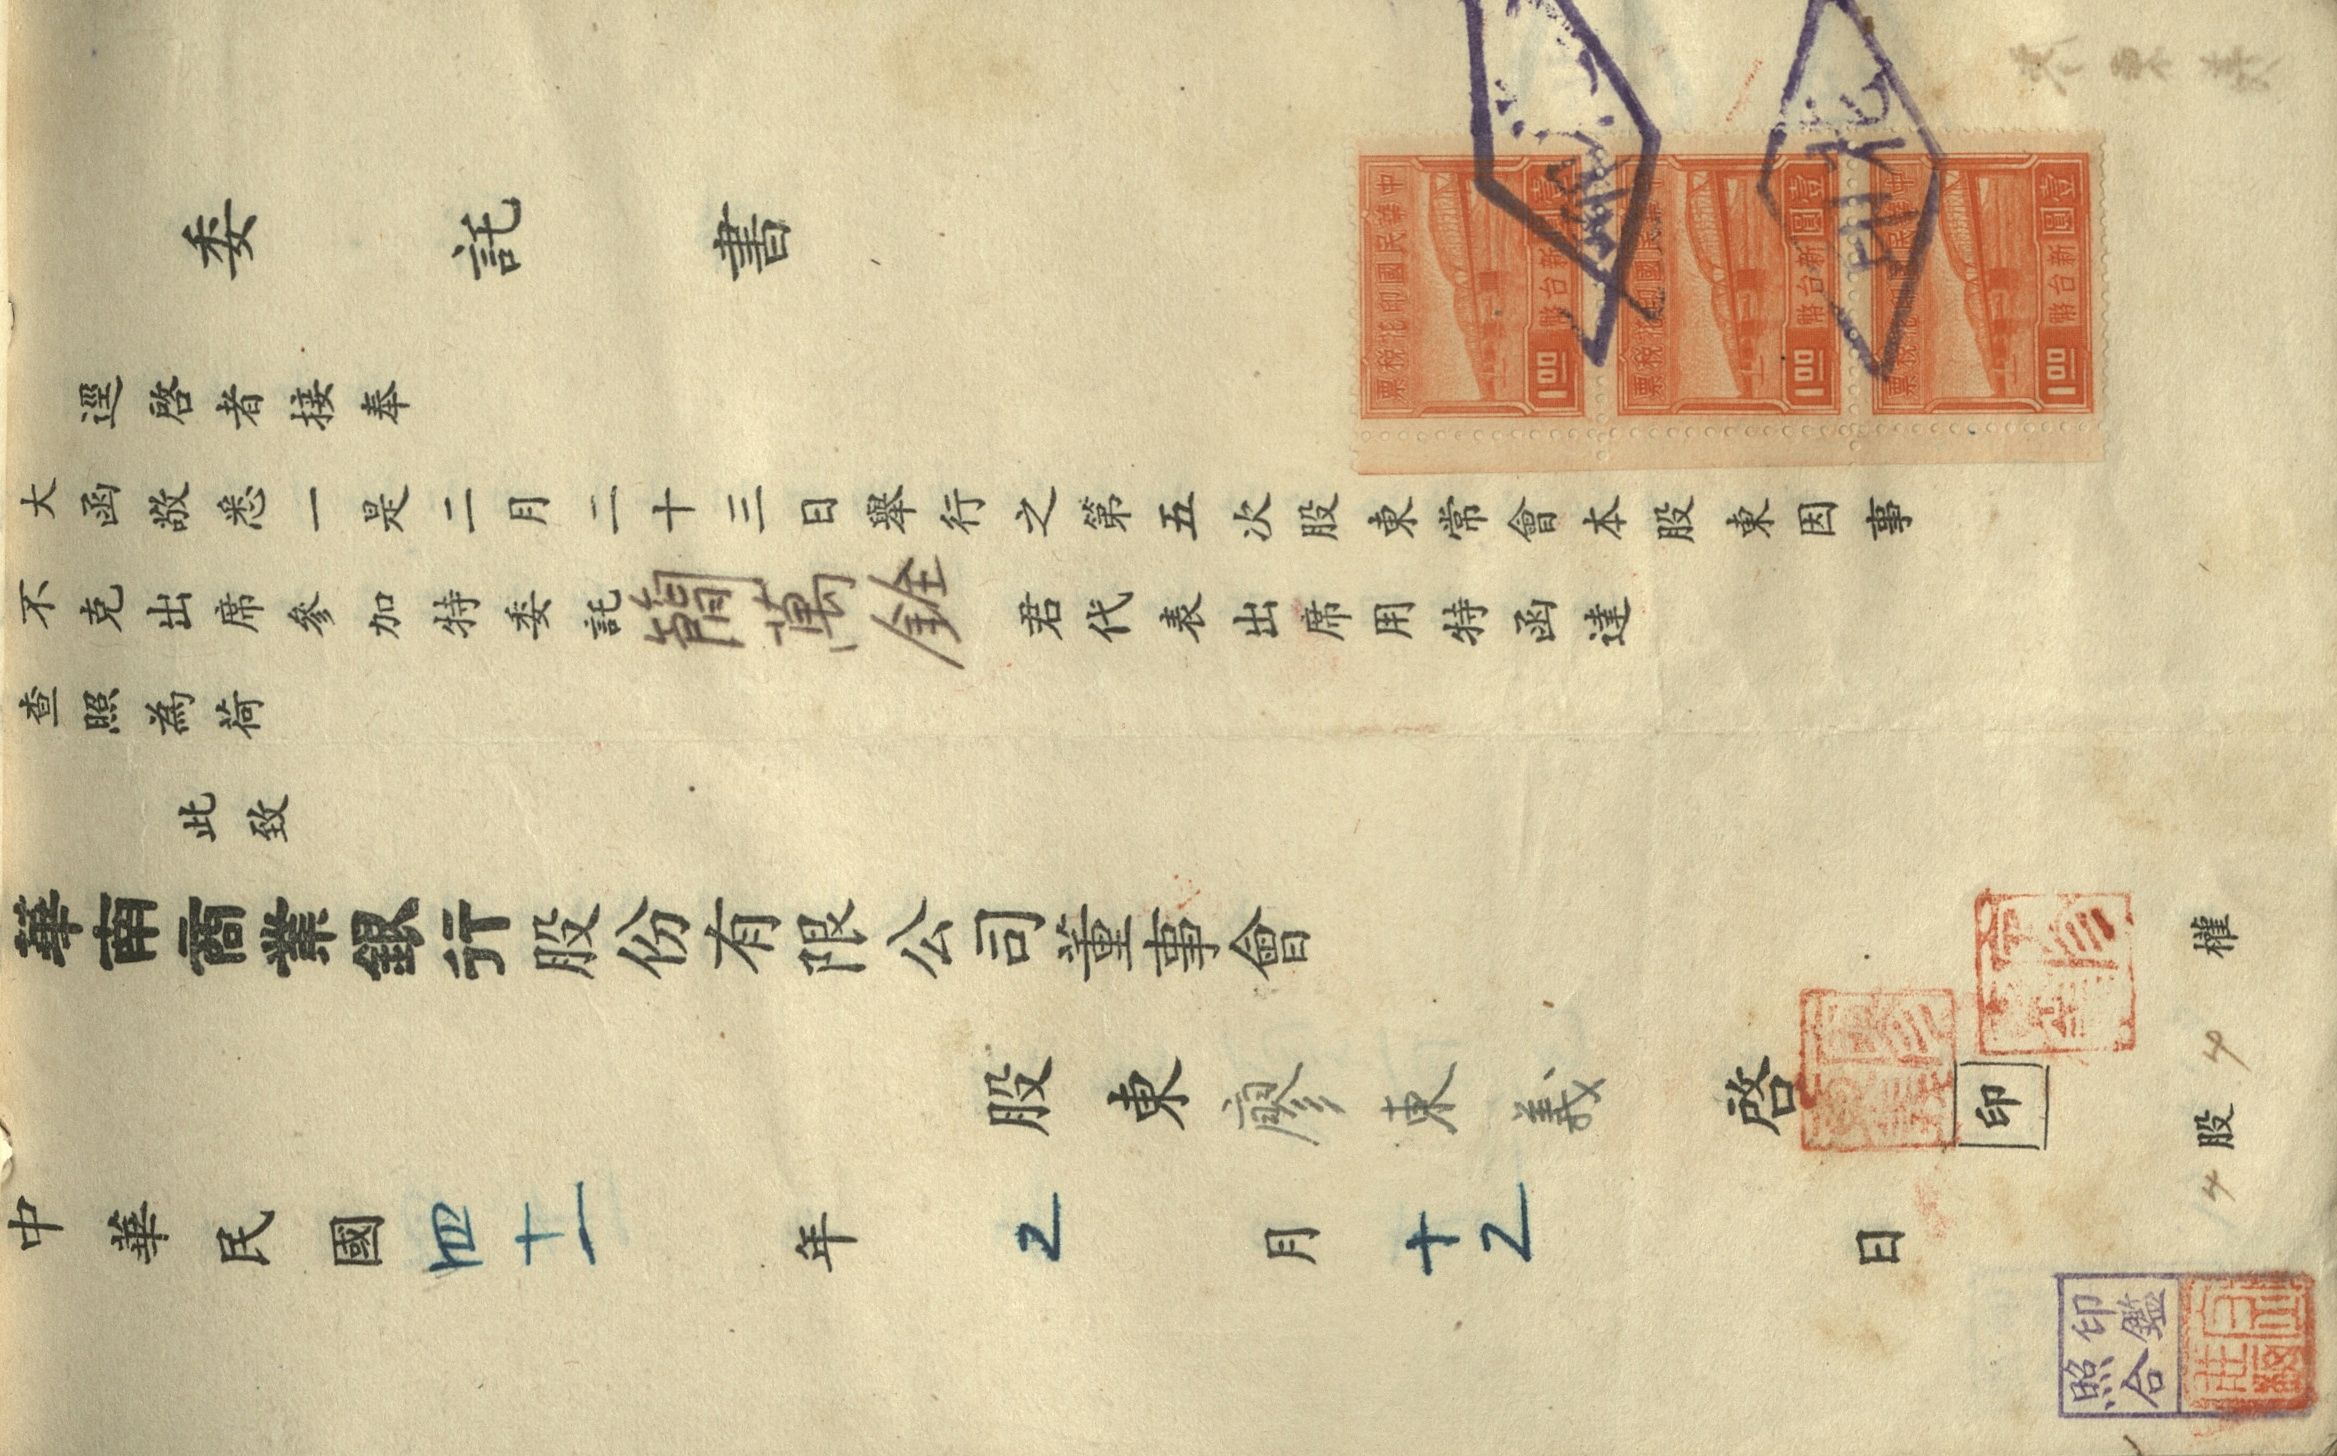 委託書
逕啓者接奉
大函敬悉一是二月二十三日舉行之第五次股東常會本股東因事
不克出席參加特委託簡萬銓君代表出席用特函達
查照為荷
此致
華南商業銀行股份有限公司董事會
股東廖東義啓
印
中華民國四十一年2月十2日
股權
印鑑
照合
中華民國印花稅票
壹圓
新台幣
1.00
中華民國印花稅票
壹圓
新台幣
1.00
中華民國印花稅票
壹圓
新台幣
1.00